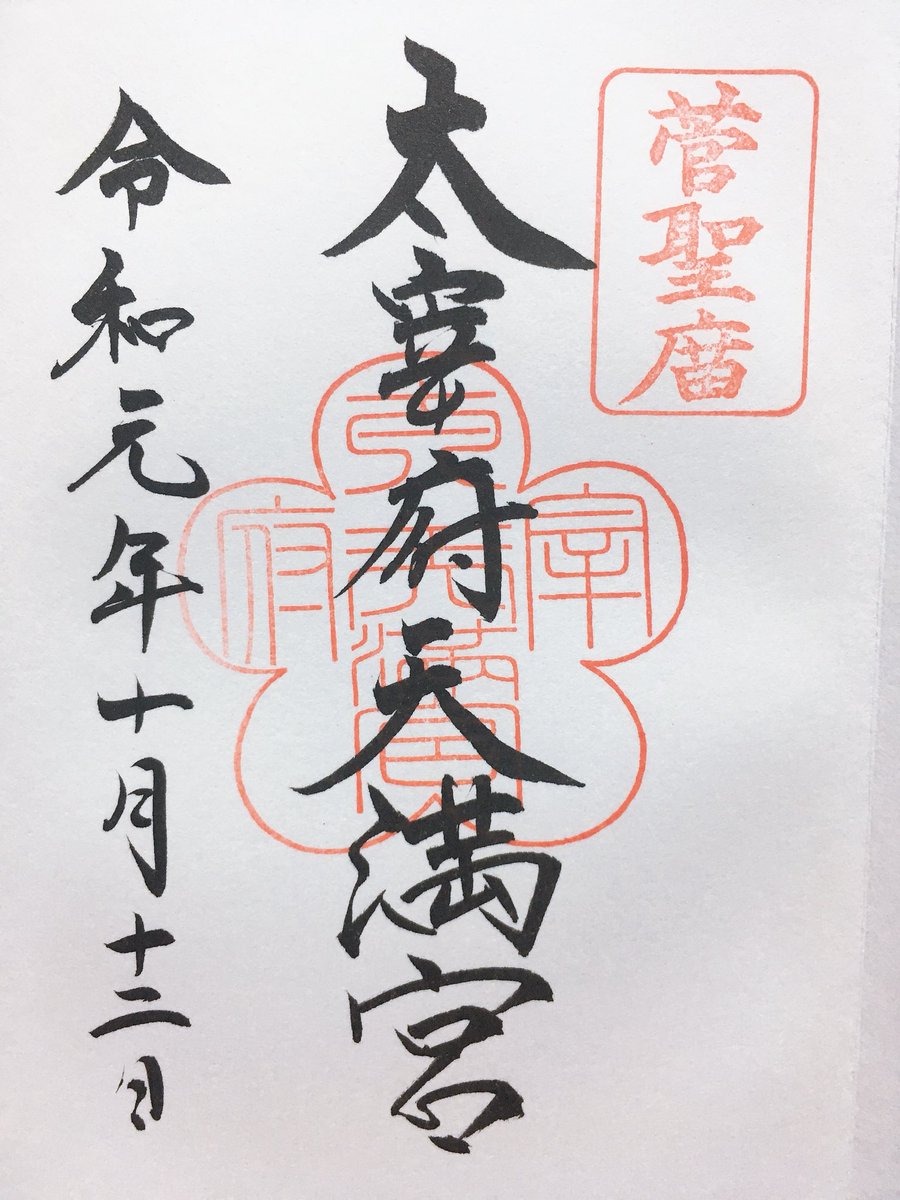 菅聖庿
太宰府天満宮
宰
府
令和元年十月十二日